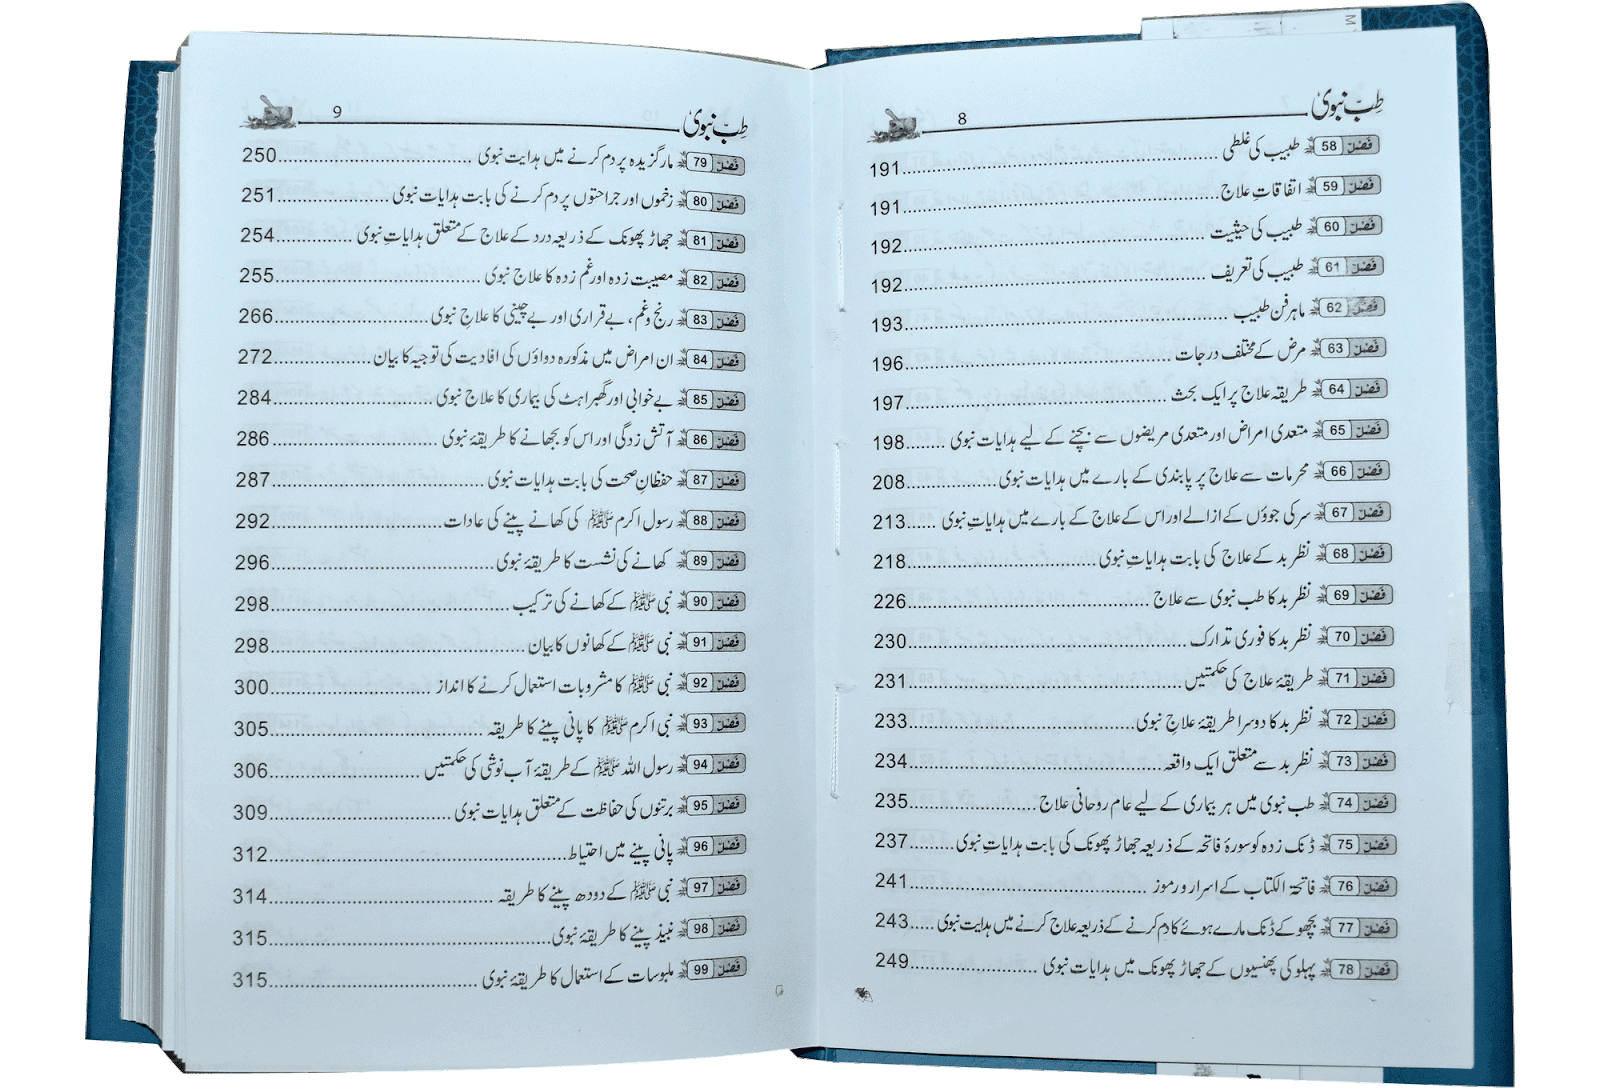 طِبّ نبویؐ
8
فَصل 58 طبیب کی غلطی ........ 191
فَصل 59 اتفاقاتِ علاج ........ 191
فَصل 60 طبیب کی حیثیت ........ 192
فَصل 61 طبیب کی تعریف ........ 192
فَصل 62 ماہر فن طبیب ........ 193
فَصل 63 مرض کے مختلف درجات ........ 196
فَصل 64 طریقہ علاج پر ایک بحث ........ 197
فَصل 65 متعدی امراض اور متعدی مریضوں سے بچنے کے لیے ہدایات نبوی ........ 198
فَصل 66 محرمات سے علاج پر پابندی کے بارے میں ہدایات نبوی ........ 208
فَصل 67 سر کی جوؤں کے ازالے اور اس کے علاج کے بارے میں ہدایاتِ نبوی ........ 213
فَصل 68 نظر بد کے علاج کی بابت ہدایاتِ نبوی ........ 218
فَصل 69 نظر بد کا طب نبوی سے علاج ........ 226
فَصل 70 نظر بد کا فوری تدارک ........ 230
فَصل 71 طریقۂ علاج کی حکمتیں ........ 231
فَصل 72 نظر بد کا دوسرا طریقۂ علاج نبوی ........ 233
فَصل 73 نظر بد سے متعلق ایک واقعہ ........ 234
فَصل 74 طب نبوی میں ہر بیماری کے لیے عام روحانی علاج ........ 235
فَصل 75 ڈنک زدہ کو سورۂ فاتحہ کے ذریعہ جھاڑ پھونک کی بابت ہدایاتِ نبوی ........ 237
فَصل 76 فاتحۃ الکتاب کے اسرار و رموز ........ 241
فَصل 77 بچھو کے ڈنک مارے ہوئے کا دم کرنے کے ذریعہ علاج کرنے میں ہدایت نبوی ........ 243
فَصل 78 پہلو کی پھنسیوں کے جھاڑ پھونک میں ہدایات نبوی ........ 249
طِبّ نبویؐ
9
فَصل 79 مار گزیدہ پر دم کرنے میں ہدایت نبوی ........ 250
فَصل 80 زخموں اور جراحتوں پر دم کرنے کی بابت ہدایات نبوی ........ 251
فَصل 81 جھاڑ پھونک کے ذریعہ درد کے علاج کے متعلق ہدایاتِ نبوی ........ 254
فَصل 82 مصیبت زدہ اور غم زدہ کا علاج نبوی ........ 255
فَصل 83 رنج و غم، بے قراری اور بے چینی کا علاجِ نبوی ........ 266
فَصل 84 ان امراض میں مذکورہ دواؤں کی افادیت کی توجیہ کا بیان ........ 272
فَصل 85 بے خوابی اور گھبراہٹ کی بیماری کا علاج نبوی ........ 284
فَصل 86 آتش زدگی اور اس کو بجھانے کا طریقۂ نبوی ........ 286
فَصل 87 حفظانِ صحت کی بابت ہدایات نبوی ........ 287
فَصل 88 رسول اکرم ﷺ کی کھانے پینے کی عادات ........ 292
فَصل 89 کھانے کی نشست کا طریقۂ نبوی ........ 296
فَصل 90 نبی ﷺ کے کھانے کی ترکیب ........ 298
فَصل 91 نبی ﷺ کے کھانوں کا بیان ........ 298
فَصل 92 نبی ﷺ کا مشروبات استعمال کرنے کا انداز ........ 300
فَصل 93 نبی اکرم ﷺ کا پانی پینے کا طریقہ ........ 305
فَصل 94 رسول اللہ ﷺ کے طریقۂ آب نوشی کی حکمتیں ........ 306
فَصل 95 برتنوں کی حفاظت کے متعلق ہدایات نبوی ........ 309
فَصل 96 پانی پینے میں احتیاط ........ 312
فَصل 97 نبی ﷺ کے دودھ پینے کا طریقہ ........ 314
فَصل 98 نبیذ پینے کا طریقۂ نبوی ........ 315
فَصل 99 ملبوسات کے استعمال کا طریقۂ نبوی ........ 315